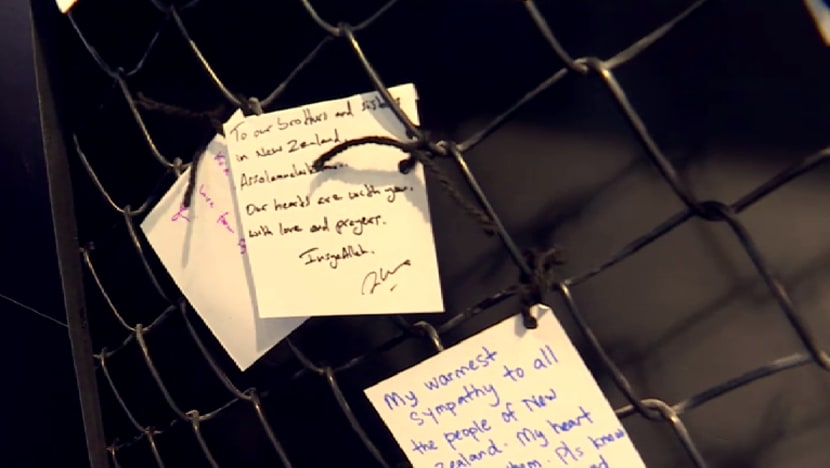 To our brothers and sisters
in New Zealand
Assalamualaikum.
Our hearts are with you.
with love and prayers.
InsyaAllah.
My warmest
sympathy to all
the people of New
Zealand. My heart
them. Pls know